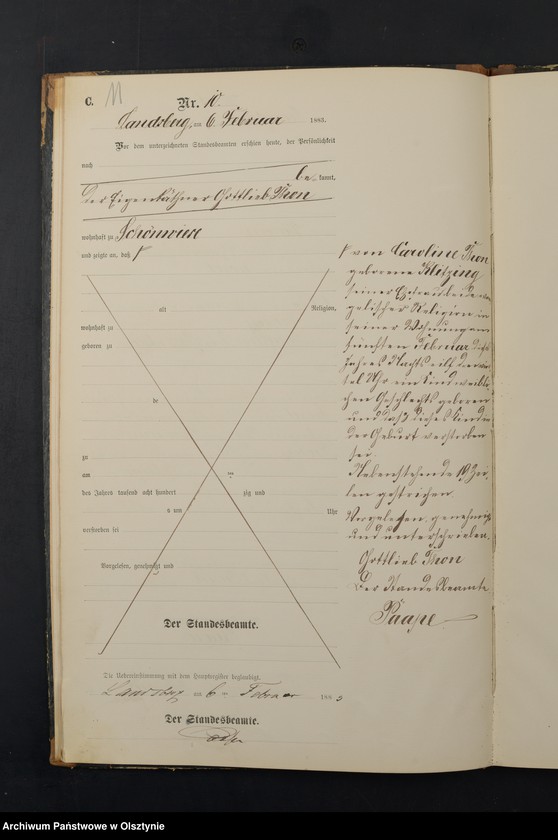 C. 11
Nr. 10.
Landsberg, am 6. Februar 1885.
Vor dem unterzeichneten Standesbeamten erschien heute, der Persönlichkeit
nach
be kannt,
der Eigenkäthner Gottlieb Thon
wohnhaft zu Schönwiese
und zeigte an, daß
von Caroline Thon
geborene Klitzing
seiner Ehefrau
gelischer Religion in
seiner Wohnung am
fünften Februar
Jahres Nachts
Uhr ein Kind weibli-
chen Geschlechts geboren
und daß dieses Kind in
der Geburt verstorben
sei.
Nebenstehende 19 Zei-
len gestrichen.
Vorgelesen, genehmigt
und unterschrieben.
Gottlieb Thon
Der Standesbeamte
Paape
alt Religion,
wohnhaft zu
geboren zu
de
zu
am ten
des Jahres tausend acht hundert zig und
um Uhr
verstorben sei
Vorgelesen, genehmigt und
Der Standesbeamte.
Die Uebereinstimmung mit dem Hauptregister beglaubigt.
Landsberg am 6ten Februar 1885
Der Standesbeamte.
Paape
Archiwum Państwowe w Olsztynie